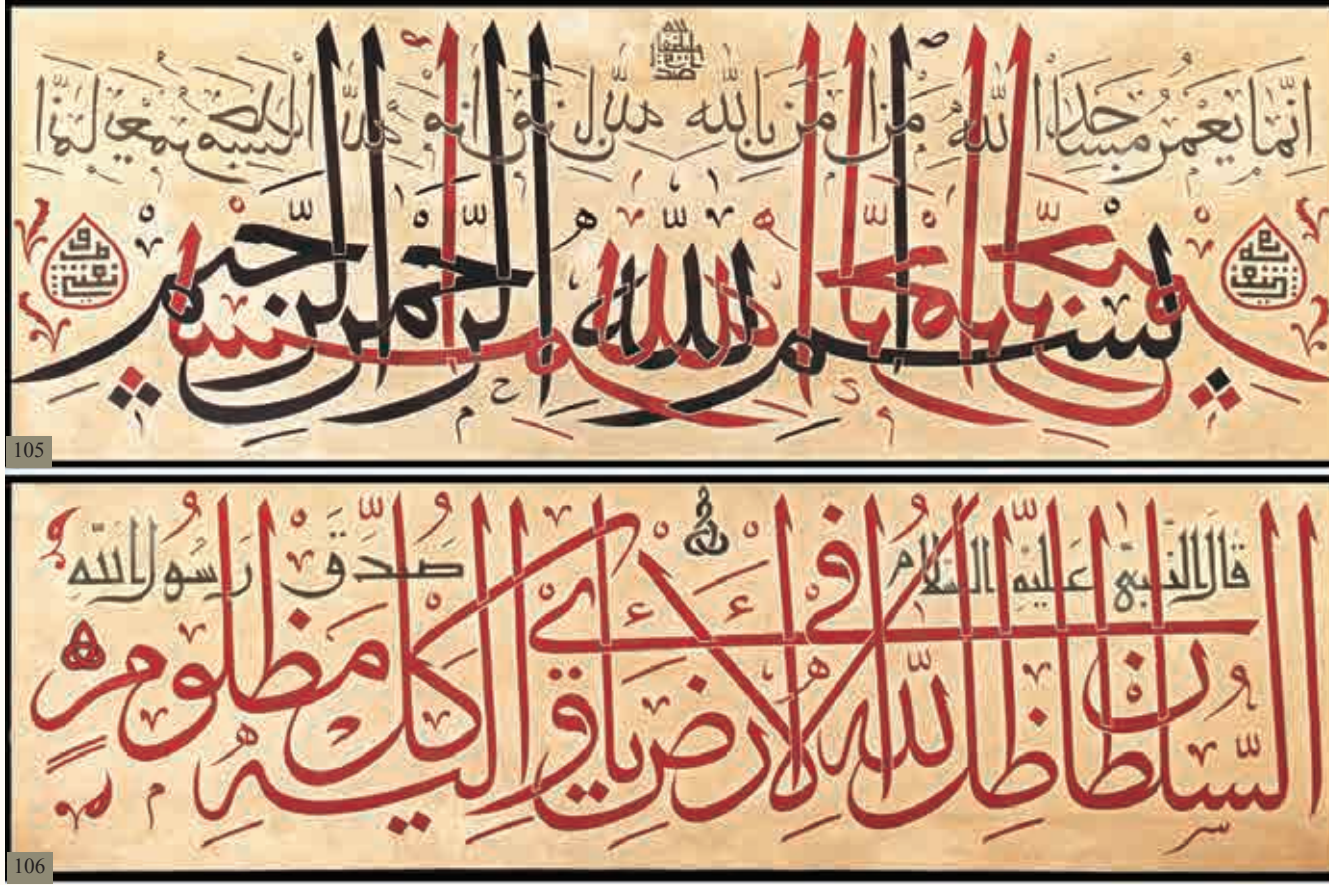 انّما يعمر مساجد الله من امن بالله
بسم الله الرّحمن الرّحيم
105
قال النّبيّ عليه السّلام صدق رسول الله
السّلطان ظلّ الله في الارض ياوي اليه كلّ مظلوم
106